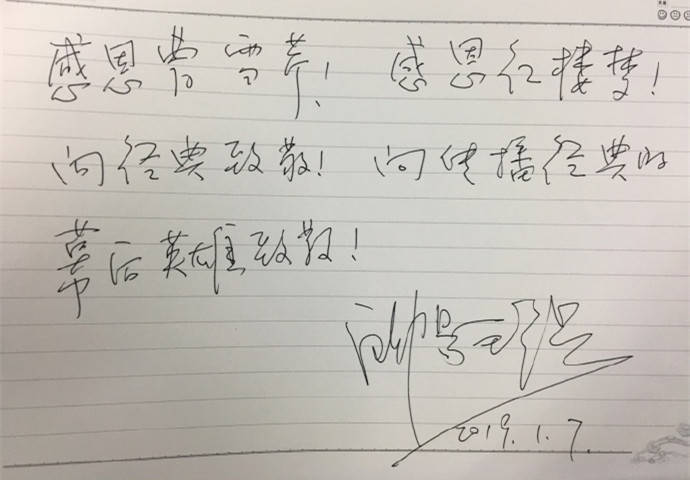 感恩曹雪芹！ 感恩红楼梦！
向经典致敬！ 向传播经典的
幕后英雄致敬！
2019.1.7.